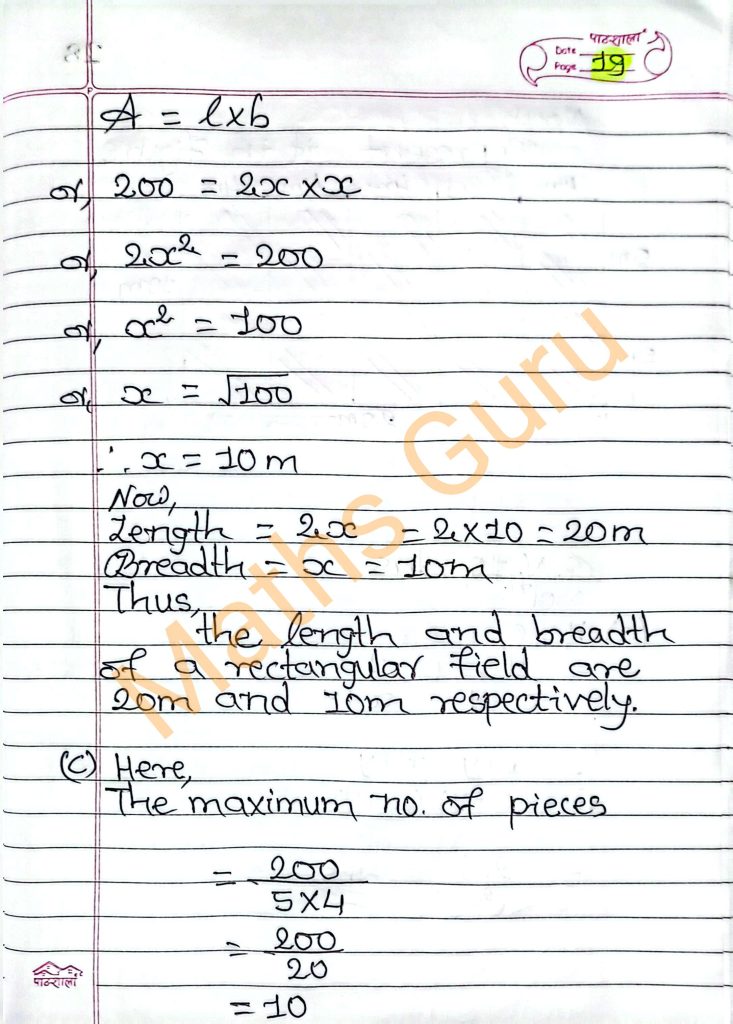 पाठशाला
Date
Page 19
A = l×b
or, 200 = 2x × x
or, 2x² = 200
or, x² = 100
or, x = √100
∴ x = 10 m
Now,
Length = 2x = 2×10 = 20m
Breadth = x = 10m
Thus,
the length and breadth
of a rectangular field are
20m and 10m respectively.
(C) Here,
The maximum no. of pieces
= 200
5×4
= 200
20
= 10
पाठशाला
Maths Guru